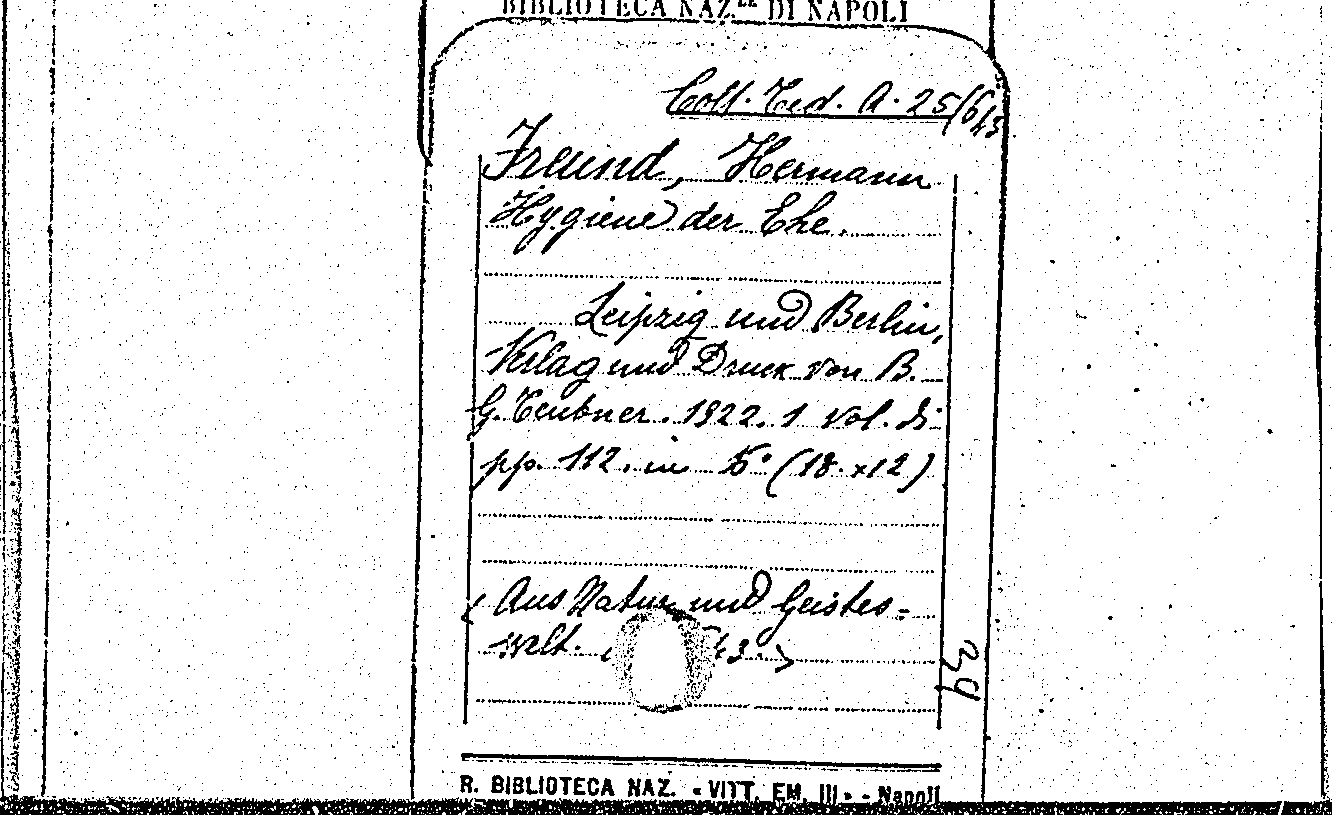 BIBLIOTECA NAZ.LE DI NAPOLI
Coll. Ted. A. 25/643
Freund, Hermann
Hygiene der Ehe.
Leipzig und Berlin,
Verlag und Druck von B.
G. Teubner. 1922. 1 vol. di
pp. 112. in (18 x12)
(Aus Natur und Geistes=
welt. 43.)
39
R. BIBLIOTECA NAZ. - VITT. EM. III - - Napoli